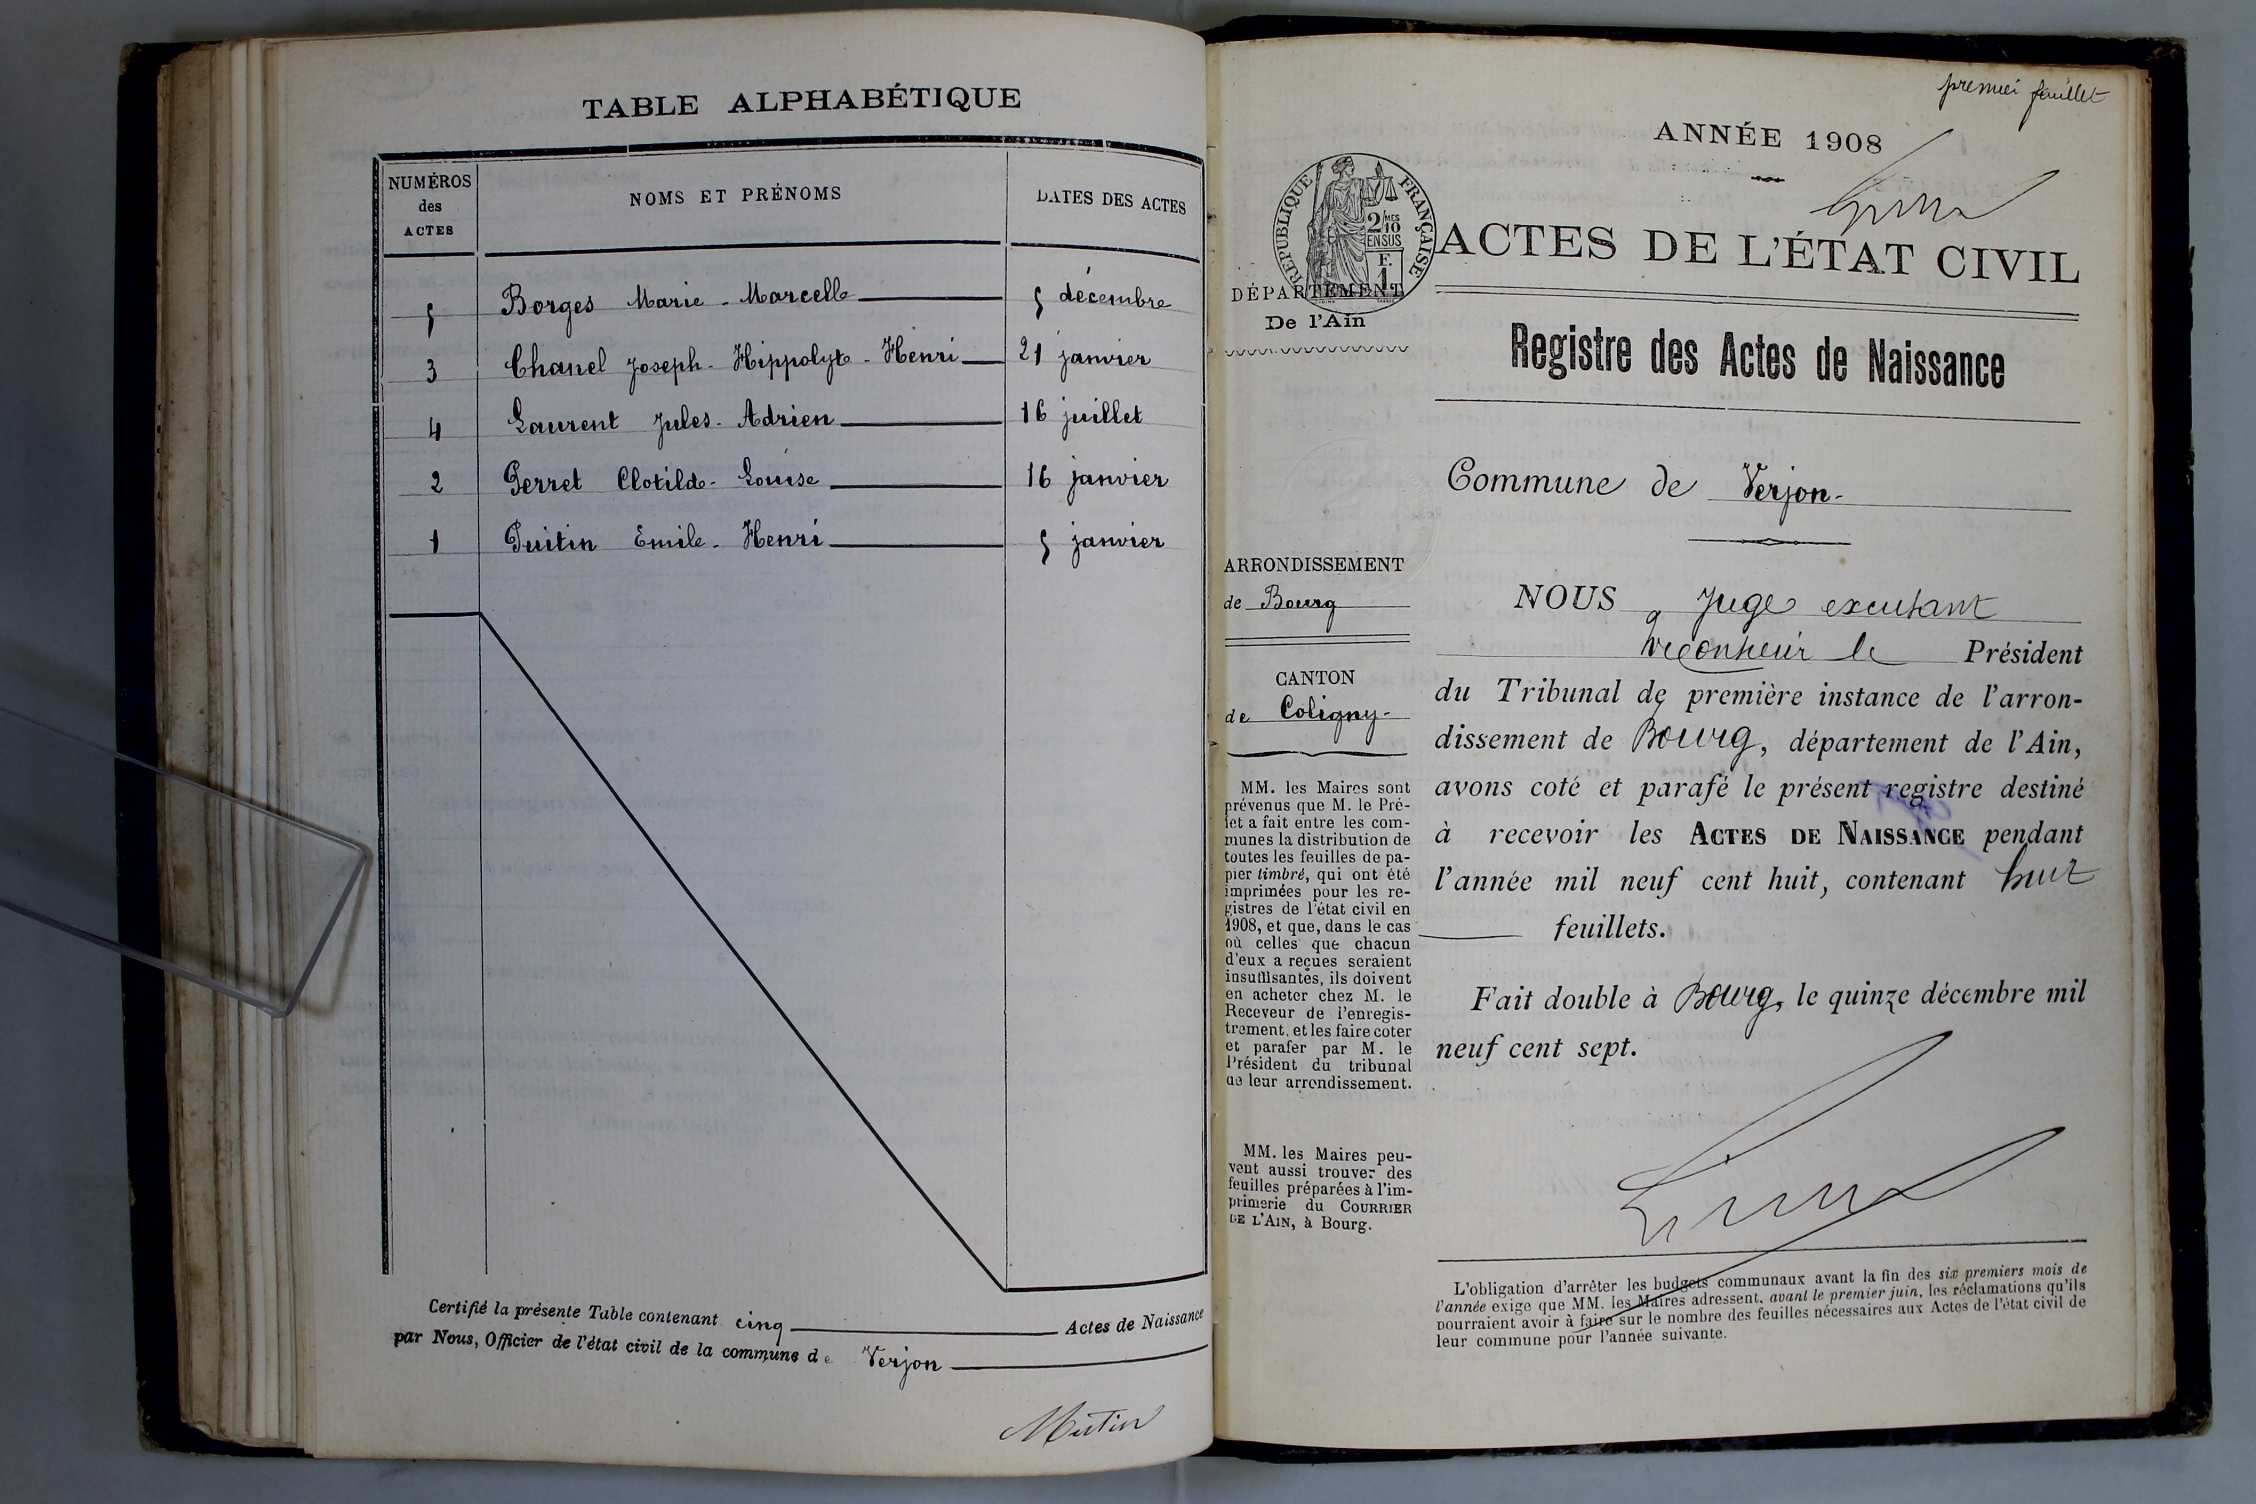 TABLE ALPHABÉTIQUE
NUMÉROS des ACTES NOMS ET PRÉNOMS DATES DES ACTES
5 Borges Marie-Marcelle 5 décembre
3 Chanel Joseph-Hippolyte-Henri 21 janvier
4 Laurent Jules-Adrien 16 juillet
2 Perret Clotilde-Louise 16 janvier
1 Puitin Emile-Henri 5 janvier
Certifié la présente Table contenant cinq Actes de Naissance
par Nous, Officier de l'état civil de la commune de Verjon
Mutin
premier feuillet
ANNÉE 1908
RÉPUBLIQUE FRANÇAISE
2/10 MES
EN SUS
F.
1
ACTES DE L'ÉTAT CIVIL
DÉPARTEMENT
De l'Ain
Registre des Actes de Naissance
Commune de Verjon-
ARRONDISSEMENT
de Bourg
CANTON
de Coligny-
MM. les Maires sont
prévenus que M. le Pré-
fet a fait entre les com-
munes la distribution de
toutes les feuilles de pa-
pier timbré, qui ont été
imprimées pour les re-
gistres de l'état civil en
1908, et que, dans le cas
où celles que chacun
d'eux a reçues seraient
insuffisantes, ils doivent
en acheter chez M. le
Receveur de l'enregis-
trement, et les faire coter
et parafer par M. le
Président du tribunal
de leur arrondissement.
MM. les Maires peu-
vent aussi trouver des
feuilles préparées à l'im-
primerie du COURRIER
DE L'AIN, à Bourg.
NOUS Juge
le Président
du Tribunal de première instance de l'arron-
dissement de Bourg, département de l'Ain,
avons coté et parafé le présent registre destiné
à recevoir les ACTES DE NAISSANCE pendant
l'année mil neuf cent huit, contenant huit
feuillets.
Fait double à Bourg, le quinze décembre mil
neuf cent sept.
L'obligation d'arrêter les budgets communaux avant la fin des six premiers mois de
l'année exige que MM. les Maires adressent, avant le premier juin, les réclamations qu'ils
pourraient avoir à faire sur le nombre des feuilles nécessaires aux Actes de l'état civil de
leur commune pour l'année suivante.